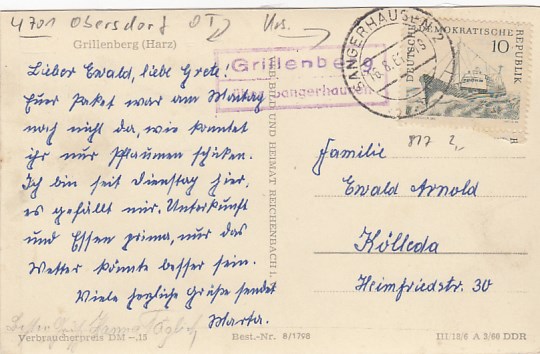 4701 Obersdorf OT
Grillenberg (Harz)
Lieber Ewald, liebe Grete.
Euer Paket war am Montag
noch nicht da, wie konntet
ihr nur Pflaumen schicken.
Ich bin seit Dienstag hier,
es gefällt mir. Unterkunft
und Essen prima, nur das
Wetter könnte besser sein.
Viele herzliche Grüße sendet
Marta.
Verbraucherpreis DM –,15
Best.-Nr. 8/1798
BILD UND HEIMAT REICHENBACH I.
Grillenberg
über Sangerhausen
SANGERHAUSEN 2
DEUTSCHE DEMOKRATISCHE REPUBLIK
10
817 2,-
Familie
Ewald Arnold
Kölleda
Heimfriedstr. 30
III/18/6 A 2/66 DDR